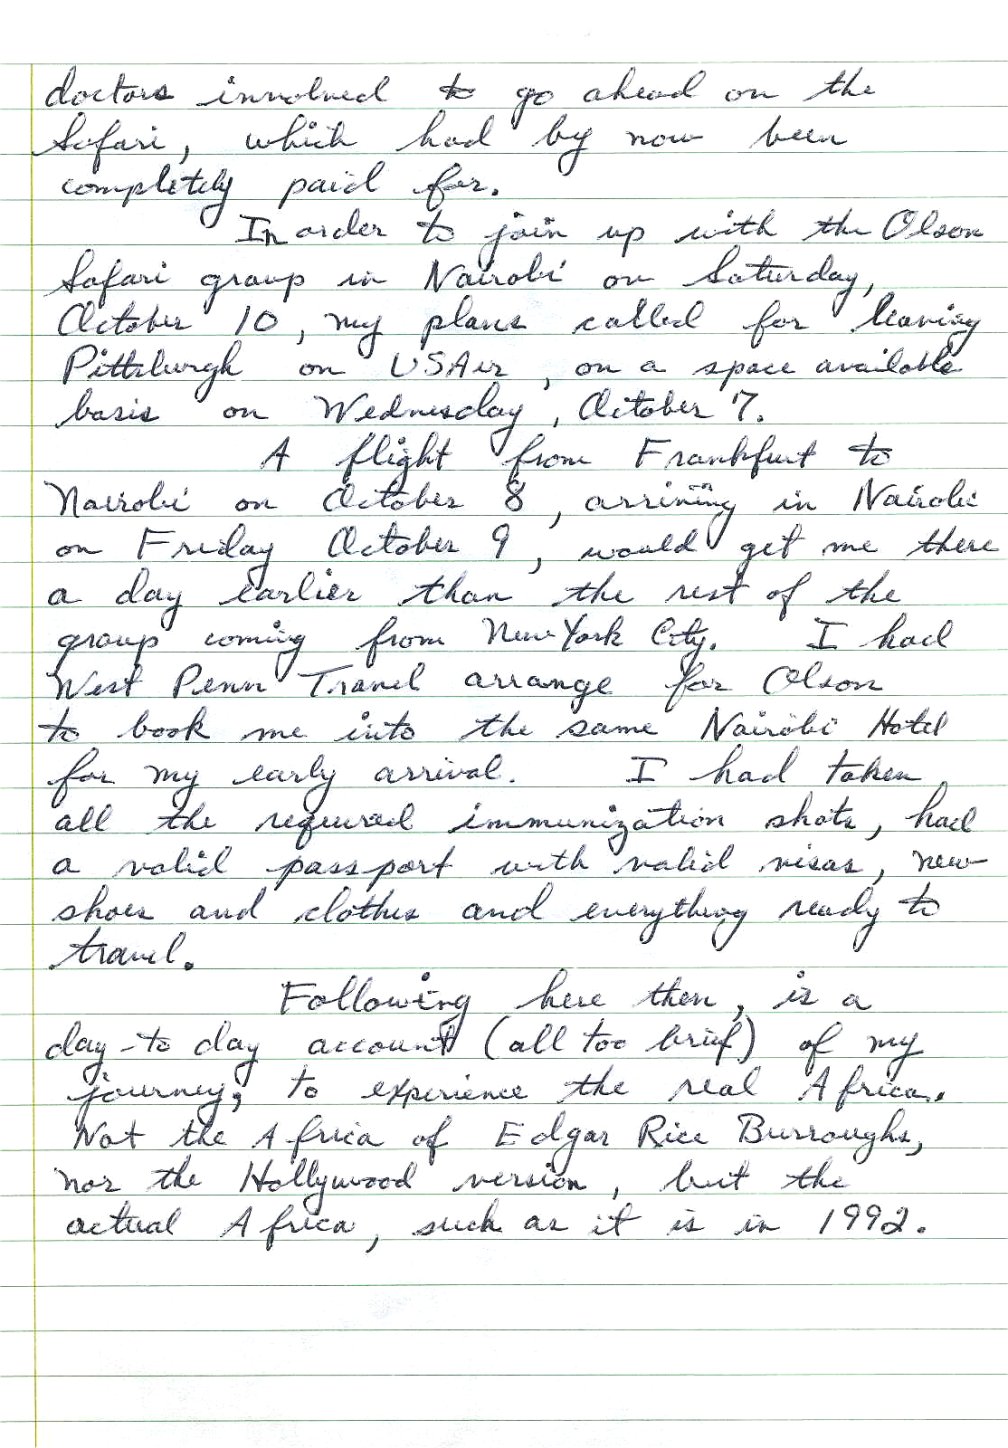 doctors involved to go ahead on the
Safari, which had by now been
completely paid for.
In order to join up with the Olson
Safari group in Nairobi on Saturday,
October 10, my plans called for leaving
Pittsburgh on USAir, on a space available
basis on Wednesday, October 7.
A flight from Frankfurt to
Nairobi on October 8, arriving in Nairobi
on Friday October 9, would get me there
a day earlier than the rest of the
group coming from New York City. I had
West Penn Travel arrange for Olson
to book me into the same Nairobi Hotel
for my early arrival. I had taken
all the required immunization shots, had
a valid passport with valid visas, new
shoes and clothes and everything ready to
travel.
Following here then, is a
day-to day account (all too brief) of my
journey, to experience the real Africa.
Not the Africa of Edgar Rice Burroughs,
nor the Hollywood version, but the
actual Africa, such as it is in 1992.